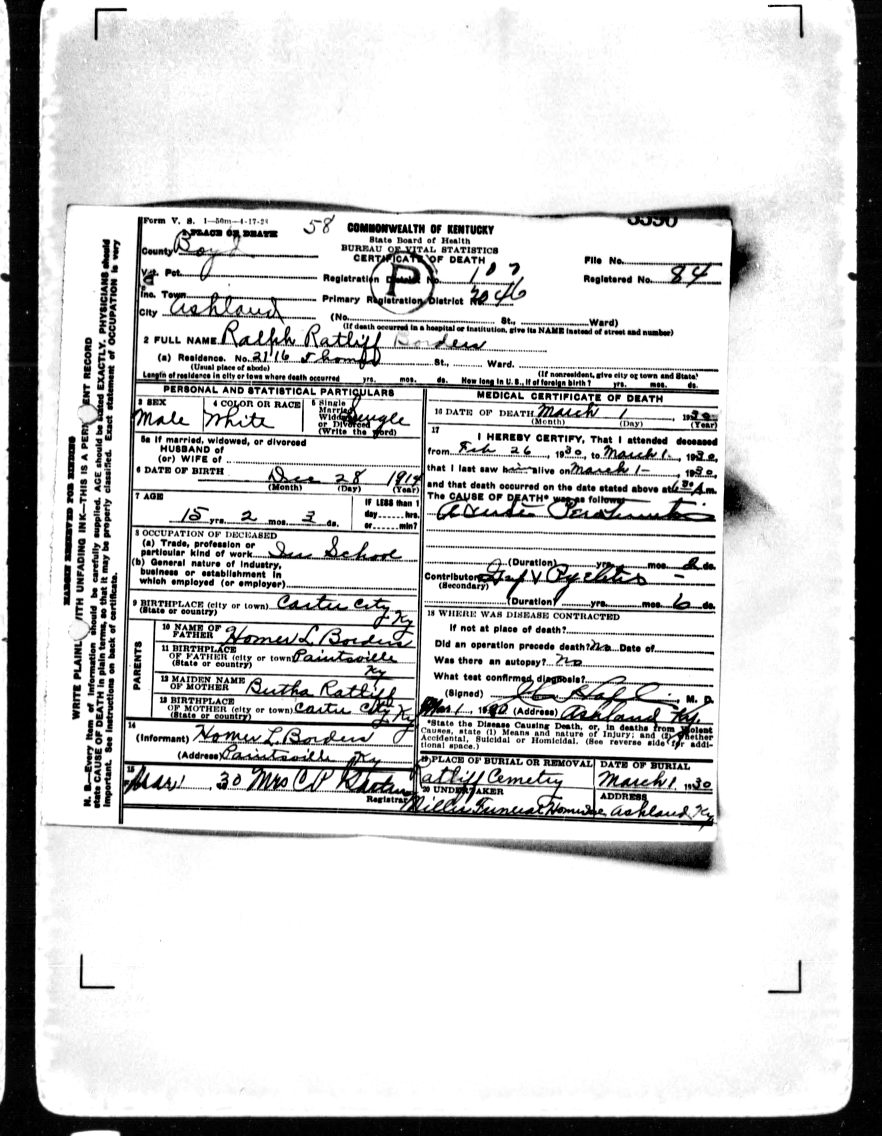 Form V. S. 1—50m—4-17-28
58
COMMONWEALTH OF KENTUCKY
State Board of Health
BUREAU OF VITAL STATISTICS
CERTIFICATE OF DEATH
1 PLACE OF DEATH
County Boyd
Vot. Pct.
Inc. Town
City Ashland
P
Registration District No. 107
Primary Registration District No. 2046
File No.
Registered No. 84
(No. St., Ward)
(If death occurred in a hospital or institution, give its NAME instead of street and number)
2 FULL NAME Ralph Ratliff Borders
(a) Residence. No. 2116 St., Ward.
(Usual place of abode) (If nonresident, give city or town and State)
Length of residence in city or town where death occurred yrs. mos. ds. How long in U. S., if of foreign birth? yrs. mos. ds.
PERSONAL AND STATISTICAL PARTICULARS
3 SEX Male
4 COLOR OR RACE White
5 Single Married Widowed or Divorced (Write the word) Single
5a If married, widowed, or divorced
HUSBAND of
(or) WIFE of
6 DATE OF BIRTH Dec 28 1914
(Month) (Day) (Year)
7 AGE 15 yrs. 2 mos. 3 ds.
IF LESS than 1 day hrs. or min?
8 OCCUPATION OF DECEASED
(a) Trade, profession or
particular kind of work In School
(b) General nature of industry,
business or establishment in
which employed (or employer)
9 BIRTHPLACE (city or town) Carter City
(State or country) Ky
PARENTS
10 NAME OF FATHER Homer L Borders
11 BIRTHPLACE OF FATHER (city or town) Paintsville
(State or country) Ky
12 MAIDEN NAME OF MOTHER Bertha Ratliff
13 BIRTHPLACE OF MOTHER (city or town) Carter City
(State or country) Ky
14
(Informant) Homer L. Borders
(Address) Paintsville Ky
15
Mar 1, 30 Mrs C P
Registrar
MEDICAL CERTIFICATE OF DEATH
16 DATE OF DEATH March 1, 1930
(Month) (Day) (Year)
17
I HEREBY CERTIFY, That I attended deceased
from Feb 26, 1930, to March 1, 1930,
that I last saw him alive on March 1, 1930,
and that death occurred on the date stated above at 6 30 A m.
The CAUSE OF DEATH* was as follows:
(Duration) yrs. mos. 2 ds.
Contributory
(Secondary)
(Duration) yrs. mos. 6 ds.
18 WHERE WAS DISEASE CONTRACTED
If not at place of death?
Did an operation precede death? No Date of
Was there an autopsy? No
What test confirmed diagnosis?
(Signed) , M. D.
Mar 1, 1930 (Address) Ashland Ky.
*State the Disease Causing Death, or, in deaths from Violent
Causes, state (1) Means and nature of Injury; and (2) whether
Accidental, Suicidal or Homicidal. (See reverse side for addi-
tional space.)
19 PLACE OF BURIAL OR REMOVAL
Ratliff Cemetry
DATE OF BURIAL
March 1, 1930
20 UNDERTAKER
Miller Funeral Home Inc
ADDRESS
Ashland, Ky
MARGIN RESERVED FOR BINDING
WRITE PLAINLY WITH UNFADING INK—THIS IS A PERMANENT RECORD
N. B.—Every item of information should be carefully supplied. AGE should be stated EXACTLY. PHYSICIANS should
state CAUSE OF DEATH in plain terms, so that it may be properly classified. Exact statement of OCCUPATION is very
important. See instructions on back of certificate.